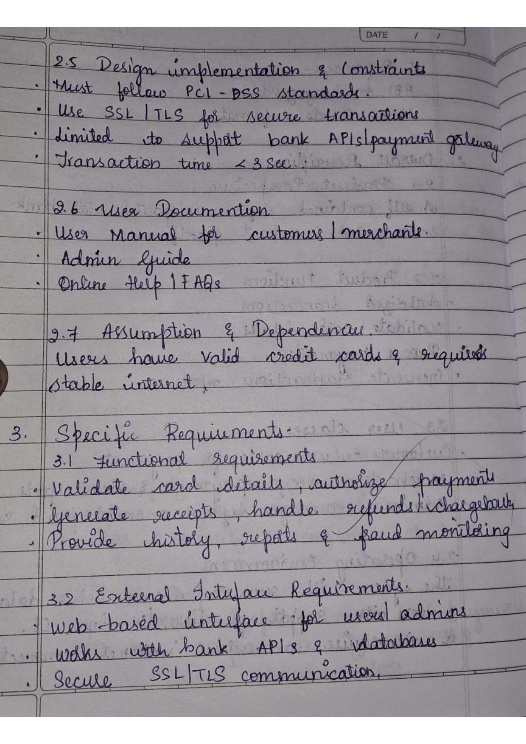 DATE / /
2.5 Design implementation & Constraints
· Must follow PCI-DSS standards.
· Use SSL | TLS for secure transactions
· Limited to support bank APIs/payment gateway
· Transaction time < 3 Sec.
2.6 User Documention
· User Manual for customers | merchants.
· Admin Guide
· Online Help | FAQs
2.7 Assumption & Dependencies.
Users have valid credit cards & requires
stable internet.
3. Specific Requirements.
3.1 Functional requirements
· Validate card details, authorize payments
· Generate receipts, handle refunds/chargebacks
· Provide history, reports & fraud monitoring
3.2 External Interface Requirements.
· Web-based interface for users/ admins
· Works with bank APIs & databases
· Secure SSL/TLS communication.